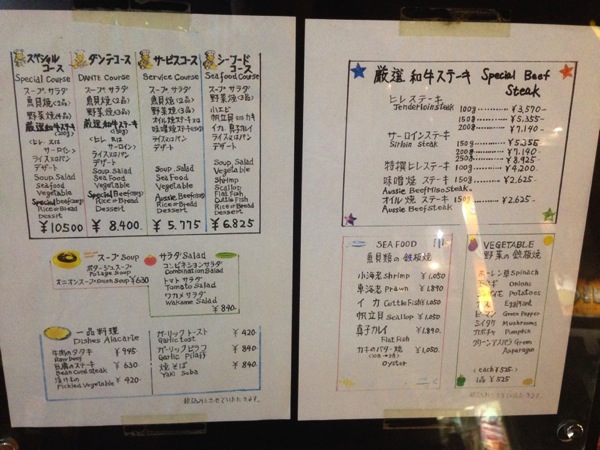 スペシャルコース
Special Course
スープ サラダ
魚貝焼(2品)
野菜焼(4品)
厳選和牛ステーキ
ライス又はパン
デザート
Soup Salad
Seafood
Vegetable
Special beef
Rice or Bread
Dessert
¥10.500
ダンテコース
DANTE Course
スープ サラダ
魚貝焼(2品)
野菜焼(3品)
厳選和牛ステーキ
ライス又はパン
デザート
Soup Salad
Sea Food
Vegetable
Special Beef
Rice or Bread
Dessert
¥ 8.400.
サービスコース
Service Course
スープ サラダ
魚貝焼(1品)
野菜焼(3品)
オイル焼ステーキ又は
味噌焼ステーキ
ライス又はパン
デザート
Soup Salad
Seafood
Vegetable
Aussie Beef
Rice or Bread
Dessert
¥ 5.775
シーフードコース
Seafood Course
スープ サラダ
野菜焼
小エビ
帆立貝 又は カキ
イカ 真子カレイ
ライス又はパン
デザート
Soup Salad
Vegetable
Shrimp
Scallop
Flat Fish
Cuttle Fish
Rice or Bread
Dessert
¥6.825
スープ Soup
ポタージュスープ
Potage Soup
オニオンスープ Onion Soup ¥630
サラダ Salad
コンビネーションサラダ
Combination Salad
トマト サラダ
Tomato Salad
ワカメ サラダ
Wakame Salad
¥840.
一品料理
Dishes Alacarte
牛肉のタタキ ¥945
Raw beef
豆腐のステーキ ¥630
Bean Curd steak
漬けもの ¥420.
Pickled Vegetable
ガーリック トースト ¥420
Garlic tost
ガーリックピラフ ¥840.
Garlic Pilaff
焼そば ¥840.
Yaki Suba
厳選 和牛ステーキ Special Beef Steak
ヒレステーキ 100g ¥3,570-
Tenderloin steak 150g ¥5.355
200g ¥7.140-
サーロインステーキ 150g ¥5.355
Sirloin steak 200g ¥7.140
250g ¥8.925
特撰ヒレステーキ 100g ¥4.200
味噌焼 ステーキ 150g ¥2.625
Aussie Beef Miso Steak
オイル焼 ステーキ 150g ¥2.625
Aussie Beef Steak
SEA FOOD
魚貝類の 鉄板焼
小海老 Shrimp ¥1.050
車海老 Prawn ¥1.890
イカ Cuttle Fish ¥1.050
帆立貝 Scallop ¥1.050
真子カレイ ¥1.890.
Flat Fish
カキのバター焼 ¥1,050.
Oyster
VEGETABLE
野菜の 鉄板焼
ホーレン草 Spinach
Onions
Potatoes
Eggplant
ピーマン Green Pepper
シイタケ Mushrooms
カボチャ Pumpkin
グリーンアスパラ Green Asparagus
(each ¥525-)
1品 ¥525